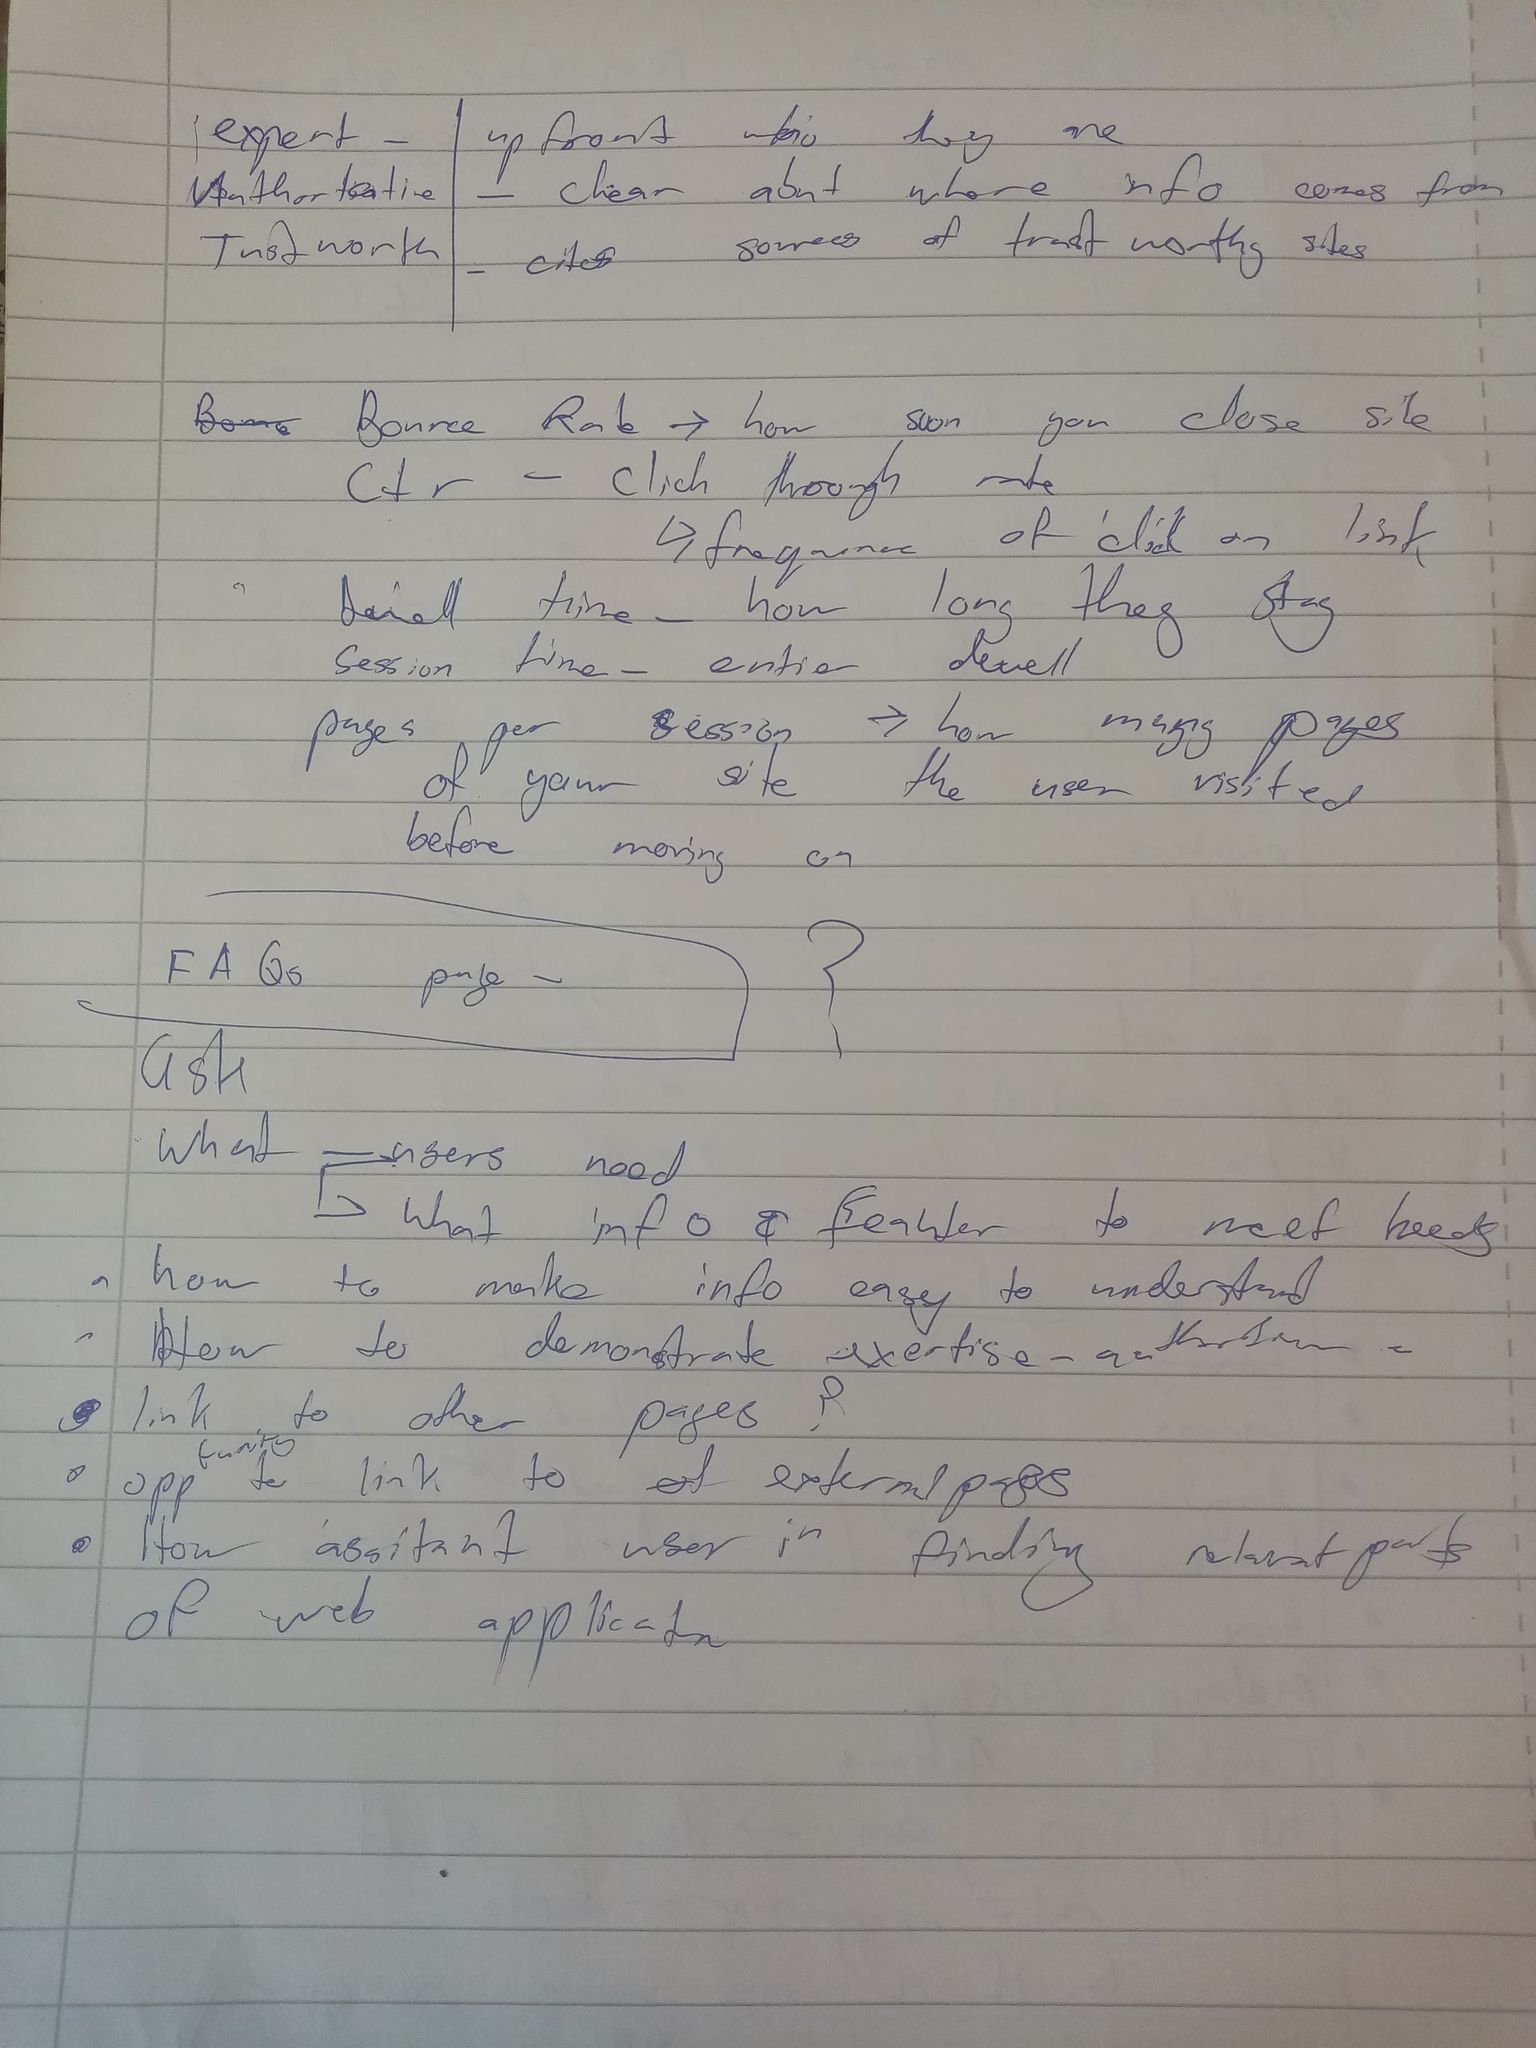 expert - | upfront who they are
Authoritative | - clear about where info comes from
Trustworth | - cites sources of trustworthy sites
Bounce Rate → how soon you close site
Ctr - click through rate
↳ frequence of click on link
Dwell time - how long they stay
Session time - entier dwell
pages per session → how many pages
of your site the user visited
before moving on
FAQs page - ?
ask
What users need
↳ What info & feauter to meet needs
how to make info easy to understand
How to demonstrate exertise -
• link to other pages ?
• opp tunity to link to external pages
• How assitant user in finding relevat parts
of web applicatn